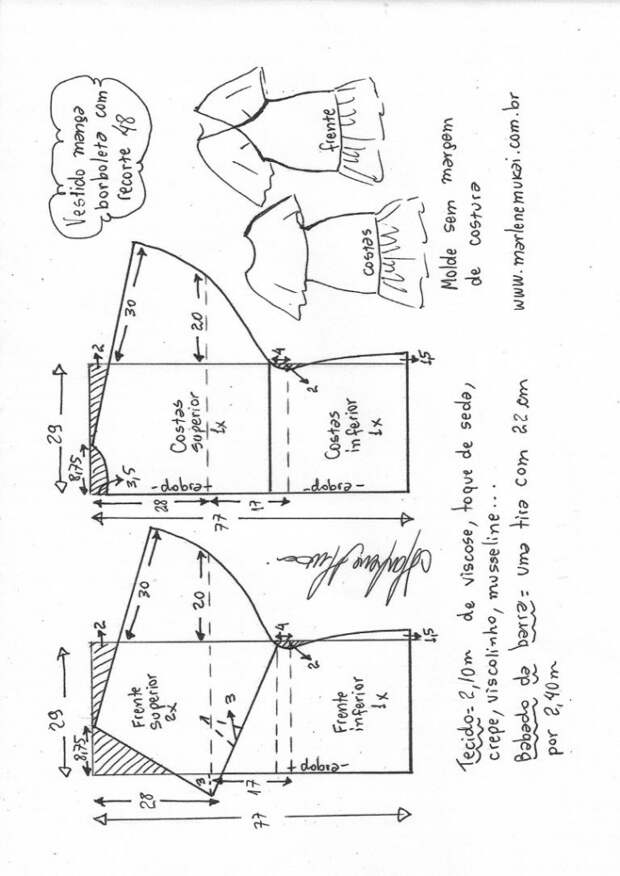 Vestido manga
borboleta com
recorte 48
frente
costas
Molde sem margem
de costura
www.marlenemukai.com.br
29
8,75
3,5
2
30
20
4
2
1,5
Costas
superior
1x
Costas
inferior
1x
-dobra-
-dobra-
28
17
77
29
8,75
2
30
20
4
2
1,5
Frente
superior
2x
1
3
3
Frente
inferior
1x
-dobra-
28
17
77
Tecido= 2,10m de viscose, toque de seda,
crepe, viscolinho, musseline...
Babado da barra= uma tira com 22 cm
por 2,40m